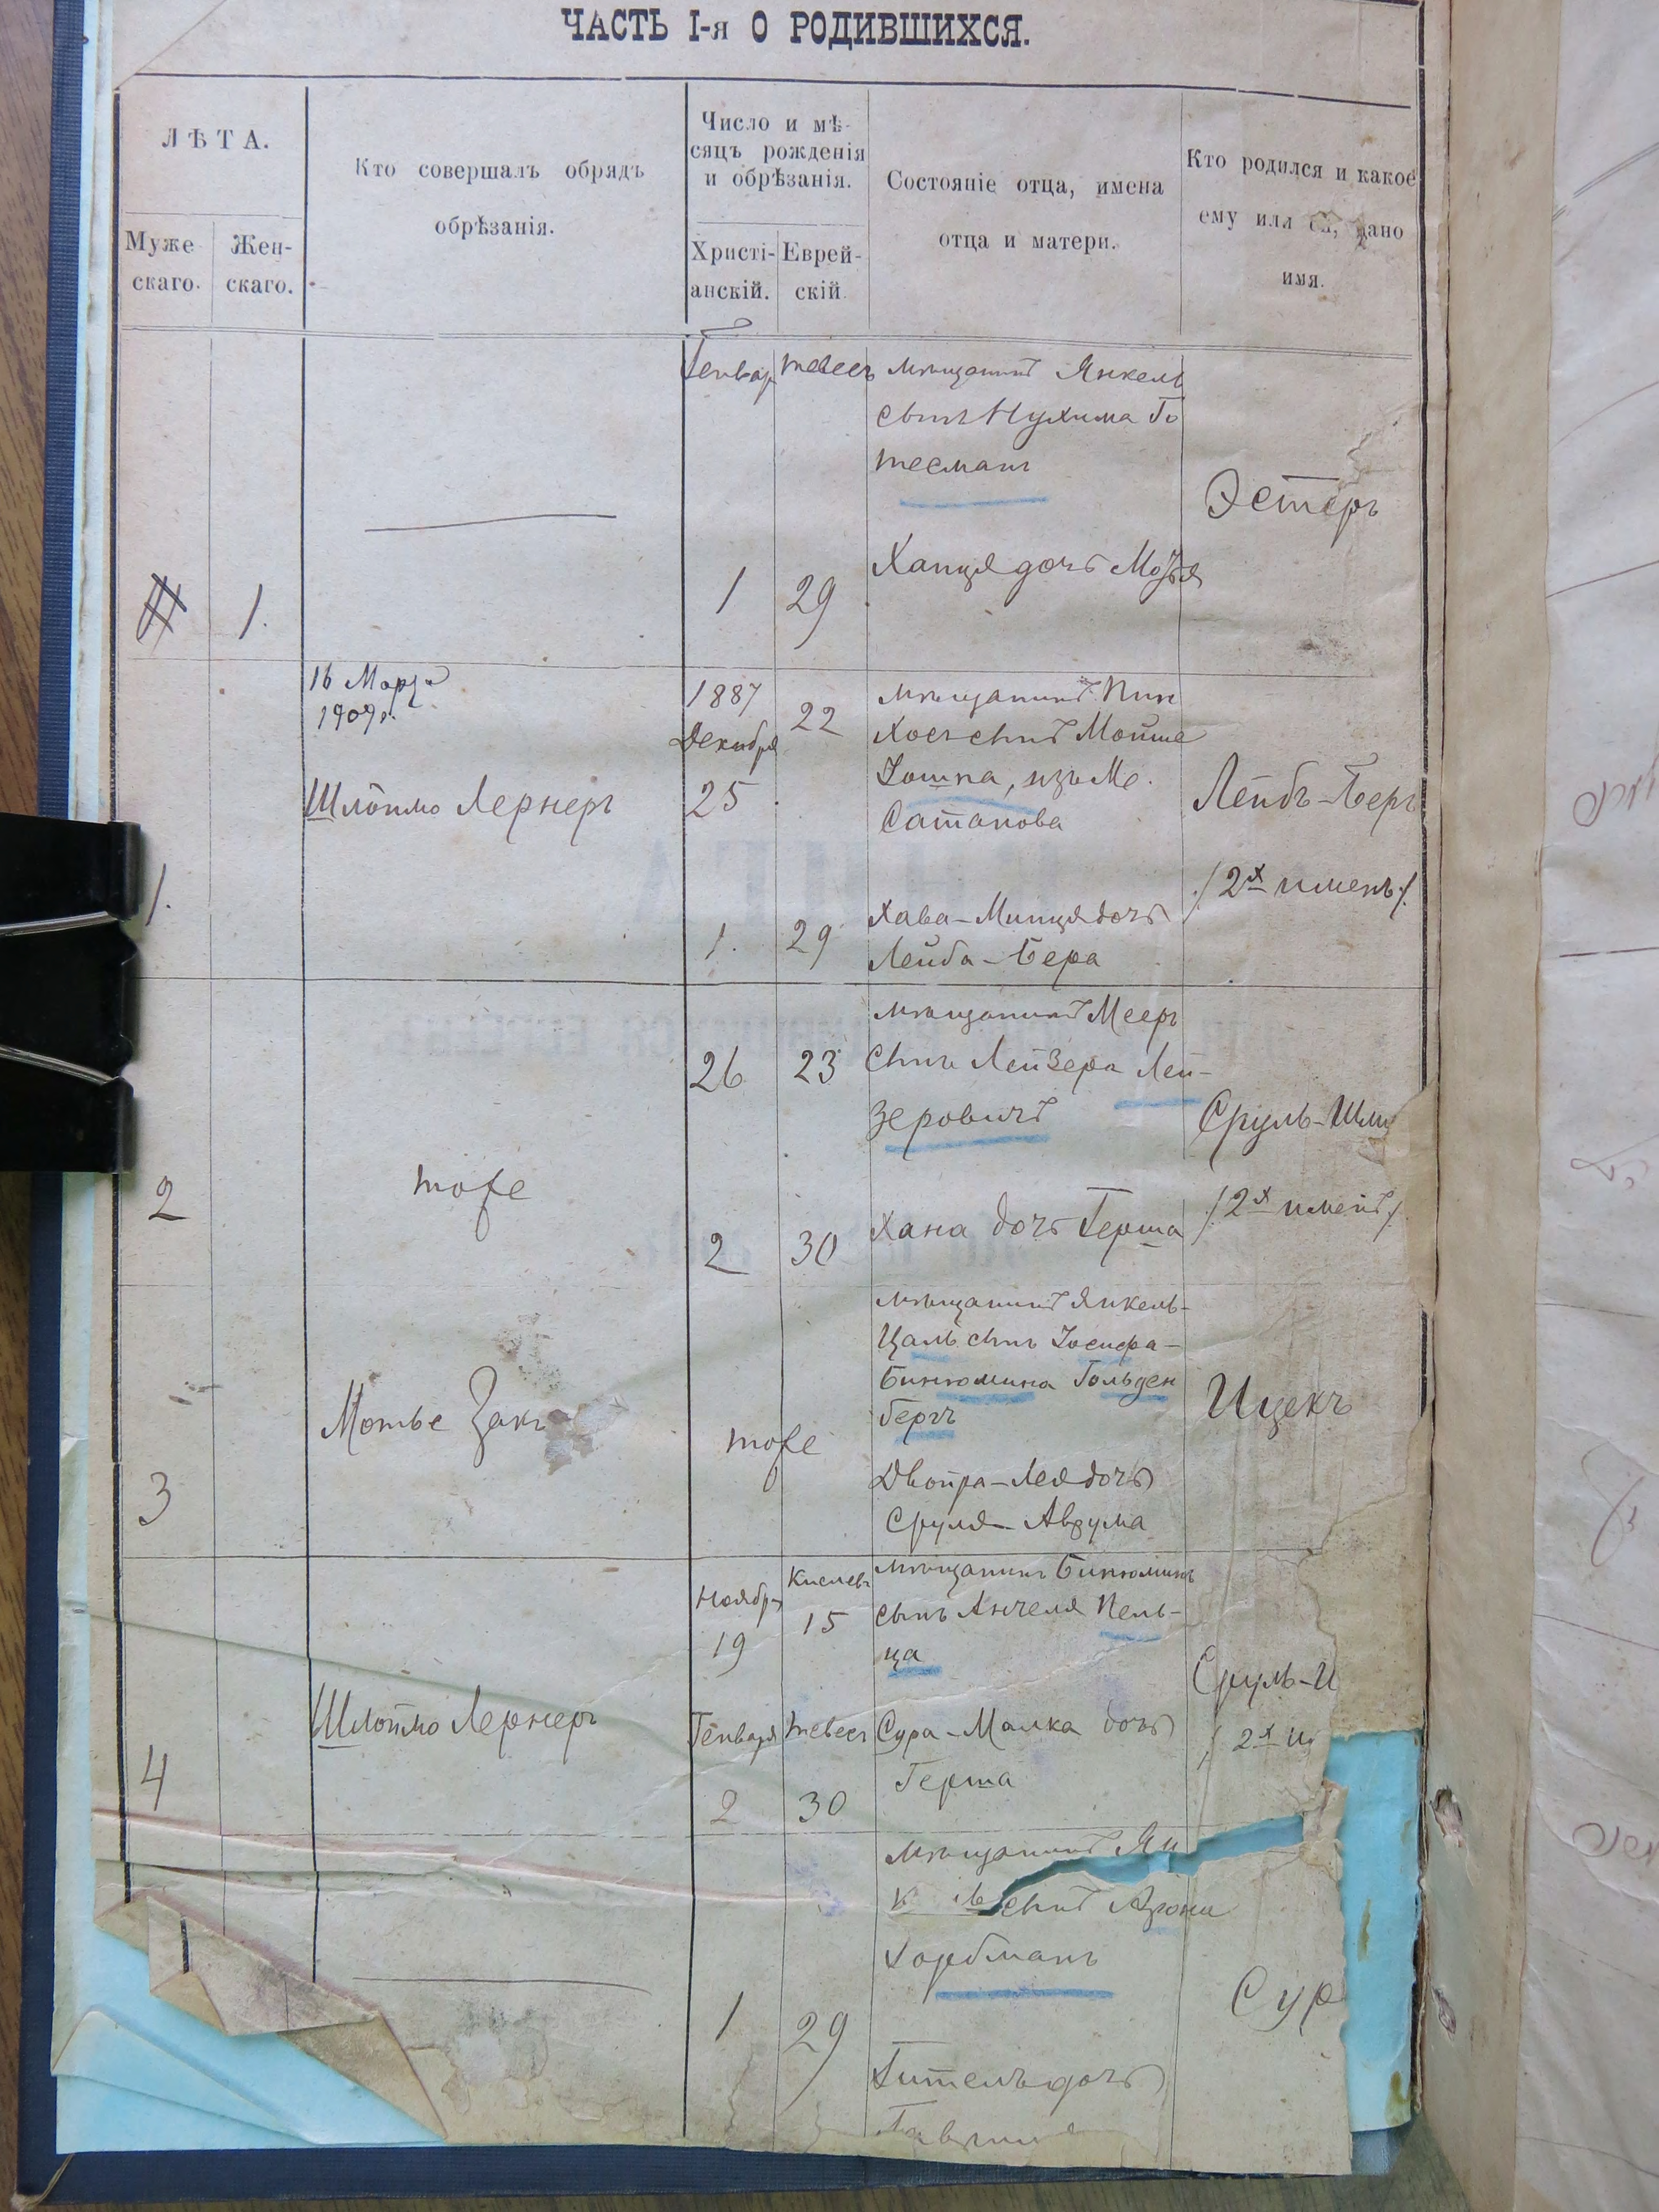 ЧАСТЬ I-я О РОДИВШИХСЯ.
ЛѢТА.
Муже-
скаго.
Жен-
скаго.
Кто совершалъ обрядъ
обрѣзанія.
Число и мѣ-
сяцъ рожденія
и обрѣзанія.
Христі-
анскій.
Еврей-
скій.
Состояніе отца, имена
отца и матери.
Кто родился и какое
ему или ей, дано
имя.
1.
Генвар
тевесъ
1
29
мѣщанинъ Янкель
сынъ Нухима Го
тесманъ
Ханця дочь
Эстеръ
1.
16 Марта
1909 г.
Шлоймо Лернеръ
1887
Декабря
25
22
1.
29
мѣщанинъ Пин
хосъ сынъ Мойше
изъ М.
Сатанова
Хава-Минця дочь
Лейба-Бера
Лейбъ-Беръ
/2х именъ/.
2
тоже
26
23
2
30
мѣщанинъ Мееръ
сынъ Лейзера Лей-
зеровичъ
Хана дочь Герша
Сруль-Шли
/2х именъ/.
3
Мотье Закъ
тоже
мѣщанинъ Янкель-
Цаль сынъ Іосифа-
Бинюмина Гольден
бергъ
Двойра-Лея дочь
Сруля-Аврума
Ицекъ
4
Шлоймо Лернеръ
Ноябр
19
Кислевъ
15
Генваря
2
тевесъ
30
мѣщанинъ Бинюминъ
сынъ Анчеля Пель-
ца
Сура-Малка дочь
Герша
Сруль-И
/2х и
1
29
мѣщанинъ Ян
к ль сынъ Арона
Хорбманъ
Гитель дочь
Сур